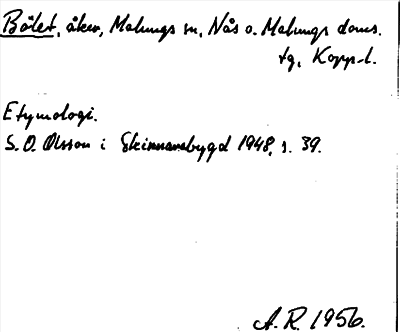 Bölet, åker, Malungs sn, Nås o. Malungs doms.
tg, Kopp-l.
Etymologi.
S. O. Olsson i Skinnarebygd 1948, s. 39.
A. R. 1956.